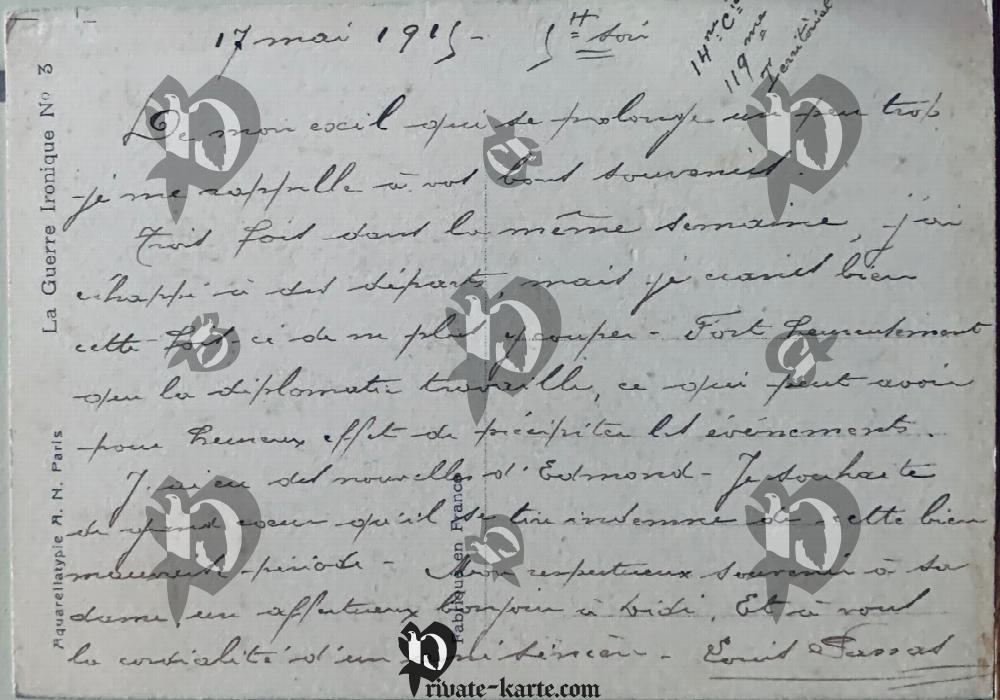 17 mai 1915 - 5H soir
14me Cie
119me
Territorial
De mon exil qui se prolonge un peu trop
je me rappelle à vos bons souvenirs.
Trois fois dans la même semaine, j'ai
échappé à des départs, mais je crains bien
cette fois-ci de ne plus y couper - Fort heureusement
que la diplomatie travaille, ce qui peut avoir
pour heureux effet de précipiter les événements.
J'ai eu des nouvelles d'Edmond - Je souhaite
de grand coeur qu'il se tire indemne de cette bien
mauvaise période - Mon respectueux souvenir à sa
dame, un affectueux bonjour à Didi, Et à vous
la cordialité d'un ami sincère - Louis
La Guerre Ironique No 3
Aquarellatypie A. N. Paris
Fabriqué en France
Private-karte.com